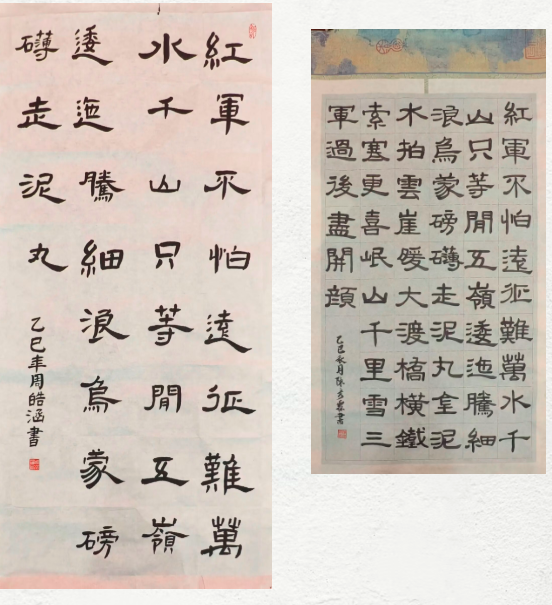 紅軍不怕遠征難萬
水千山只等閒五嶺
逶迤騰細浪烏蒙磅
礴走泥丸
乙巳年周皓涵書
紅軍不怕遠征難萬水千
山只等閒五嶺逶迤騰細
浪烏蒙磅礴走泥丸金
水拍雲崖暖大渡橋橫鐵
索寒更喜岷山千里雪三
軍過後盡開顏
乙巳秋月陳書